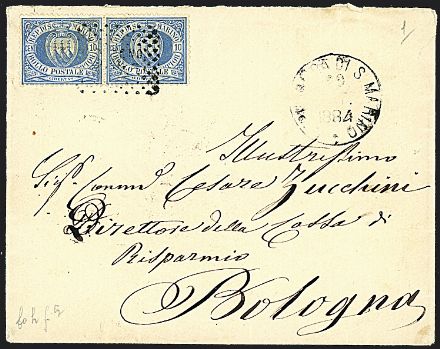 REP. DI S. MARINO REP. DI S. MARINO
10 10 10
BOLLO POSTALE BOLLO POSTALE
DI S. MARINO
1884
1
Illustrissimo
Sig. Comm. Cesare Zucchini
Direttore della Cassa di
Risparmio
Bologna